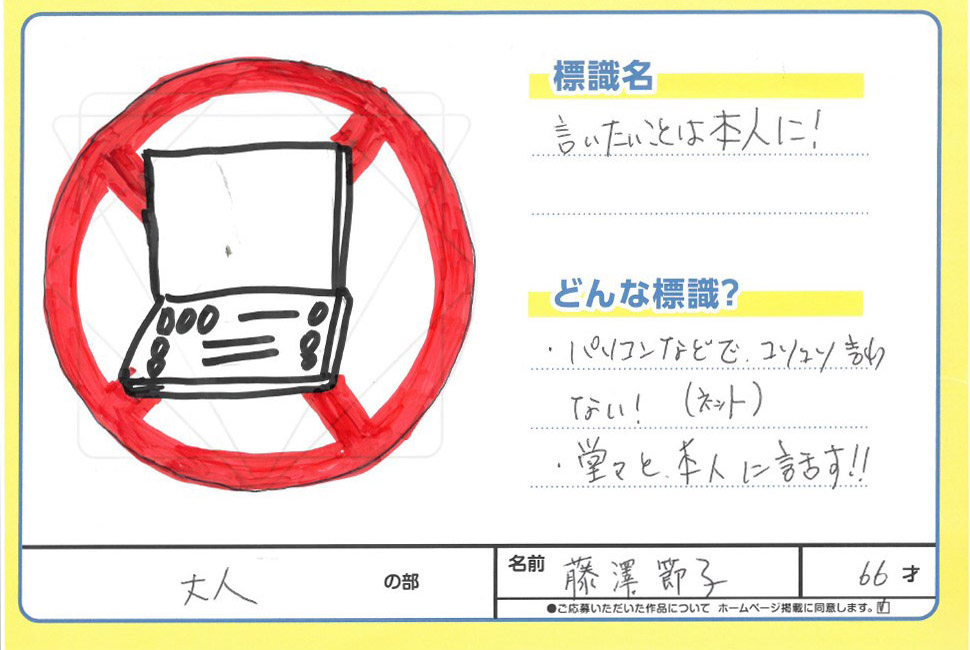 標識名
言いたいことは本人に!
どんな標識?
・パソコンなどで、コソコソ言わ
ない! (ネット)
・堂々と、本人に話す!!
大人 の部
名前 藤澤節子
66 才
●ご応募いただいた作品について ホームページ掲載に同意します。